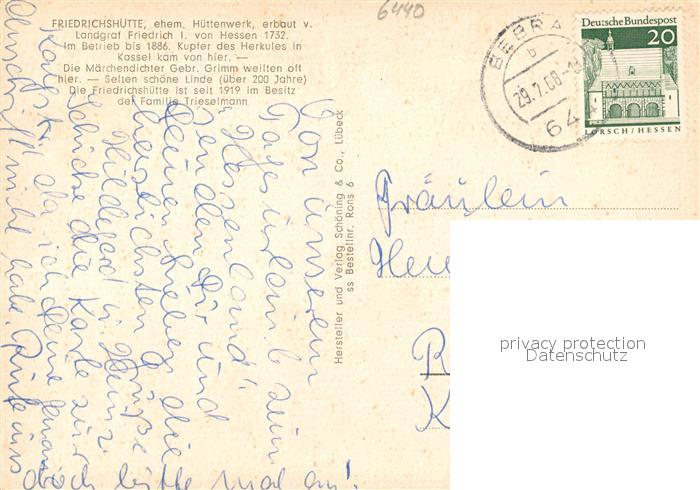 6440
FRIEDRICHSHÜTTE, ehem. Hüttenwerk, erbaut v.
Landgraf Friedrich I. von Hessen 1732.
Im Betrieb bis 1886. Kupfer des Herkules in
Kassel kam von hier. —
Die Märchendichter Gebr. Grimm weilten oft
hier. — Selten schöne Linde (über 200 Jahre)
Die Friedrichshütte ist seit 1919 im Besitz
der Familie Trieselmann
BEBRA
b
29.7.68
64
Deutsche Bundespost
20
LORSCH/HESSEN
Von unserem
Tagesurlaub zum
"Hessenland"
senden Dir und
Deinen Lieben die
herzlichsten Grüße
Hildegard u. Heinz
Schicke die Karte zur
da ich Deine genaue
Anschrift nicht habe. Rufe uns
doch bitte mal an!
Hersteller und Verlag Schöning & Co., Lübeck
ss Bestellnr. Rons 6
Fräulein
privacy protection
Datenschutz